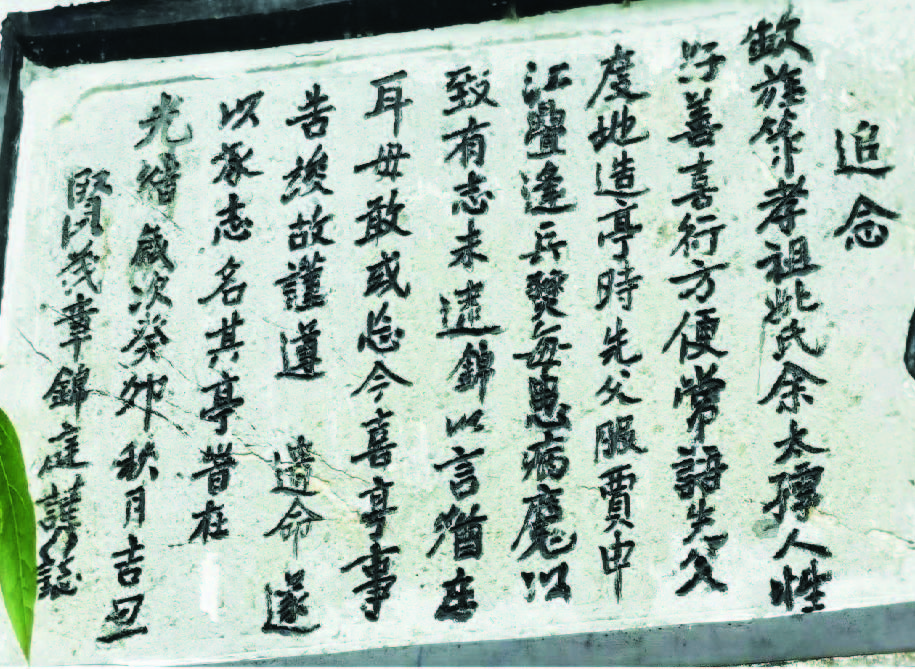 追念
故旌節孝祖妣氏余太孺人性
好善喜行方便常語先父
度地造亭時先父服賈申
江疊逢兵燹每患病魔以
致有志未逮錦以言猶在
耳毋敢或忘今喜亭事
告竣故謹遵 遺命遂
以承志名其亭昔在
光緒歲次癸卯秋月吉旦
賢茂章錦庭謹誌